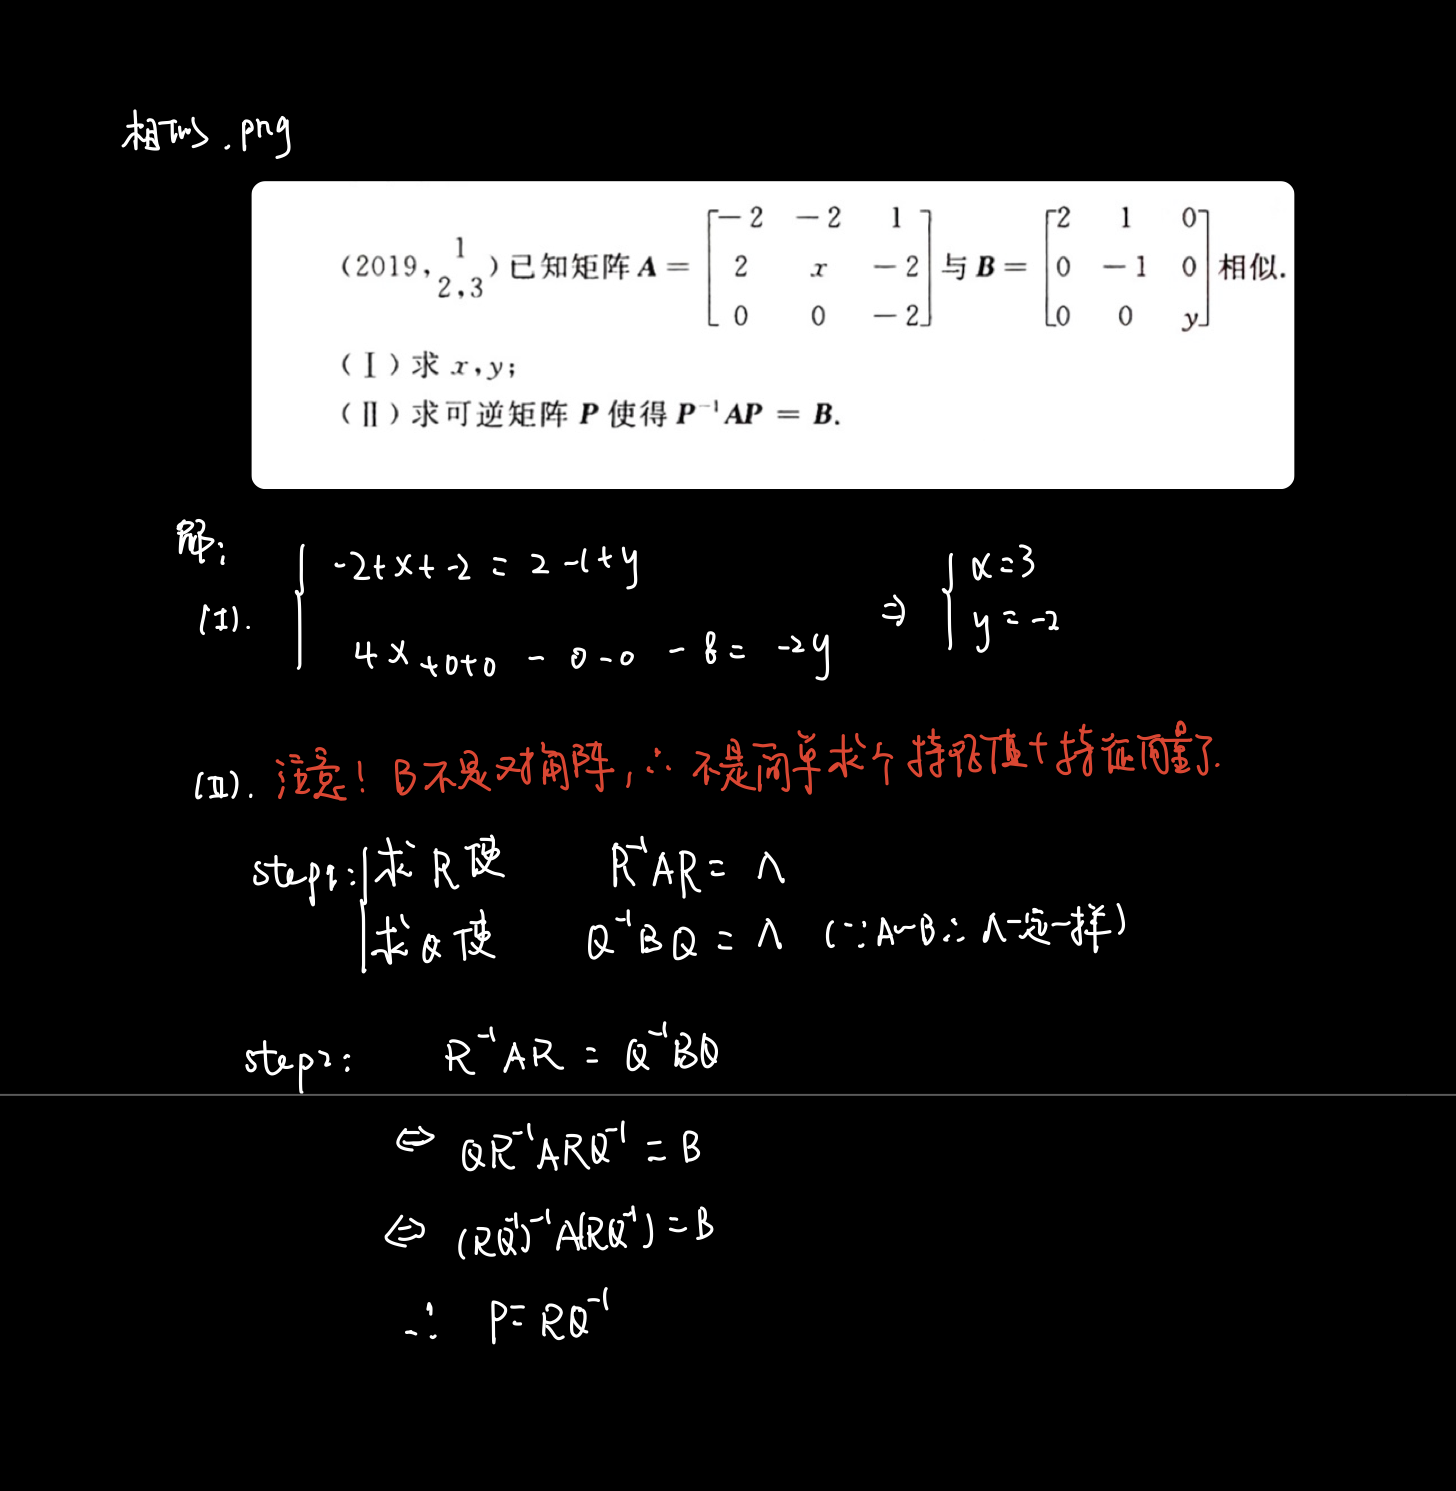 相似.png
(2019, 1 2,3) 已知矩阵 A = [-2 -2 1; 2 x -2; 0 0 -2] 与 B = [2 1 0; 0 -1 0; 0 0 y] 相似.
(Ⅰ) 求 x, y;
(Ⅱ) 求可逆矩阵 P 使得 P⁻¹AP = B.
解:
(I). { -2+x+-2 = 2-1+y
4x+0+0-0-0-8 = -2y ⇒ { x=3
y=-2
(II). 注意! B不是对角阵, ∴ 不是简单求个特征值+特征向量了.
step1: 求R使 R⁻¹AR = Λ
求Q使 Q⁻¹BQ = Λ (∵A~B ∴Λ一定一样)
step2: R⁻¹AR = Q⁻¹BQ
⇔ QR⁻¹ARQ⁻¹ = B
⇔ (RQ⁻¹)⁻¹A(RQ⁻¹) = B
∴ P = RQ⁻¹